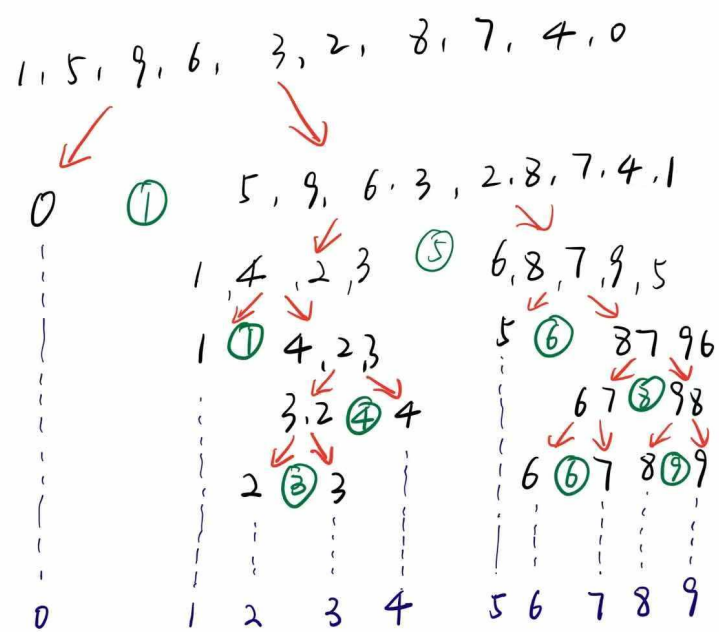 1, 5, 9, 6, 3, 2, 8, 7, 4, 0
0 ① 5, 9, 6, 3, 2, 8, 7, 4, 1
1, 4, 2, 3 ⑤ 6, 8, 7, 9, 5
1 ① 4, 2, 3 5 ⑥ 87 96
3, 2 ④ 4 67 ⑧ 98
2 ③ 3 6 ⑥ 7 8 ⑨ 9
0 1 2 3 4 5 6 7 8 9